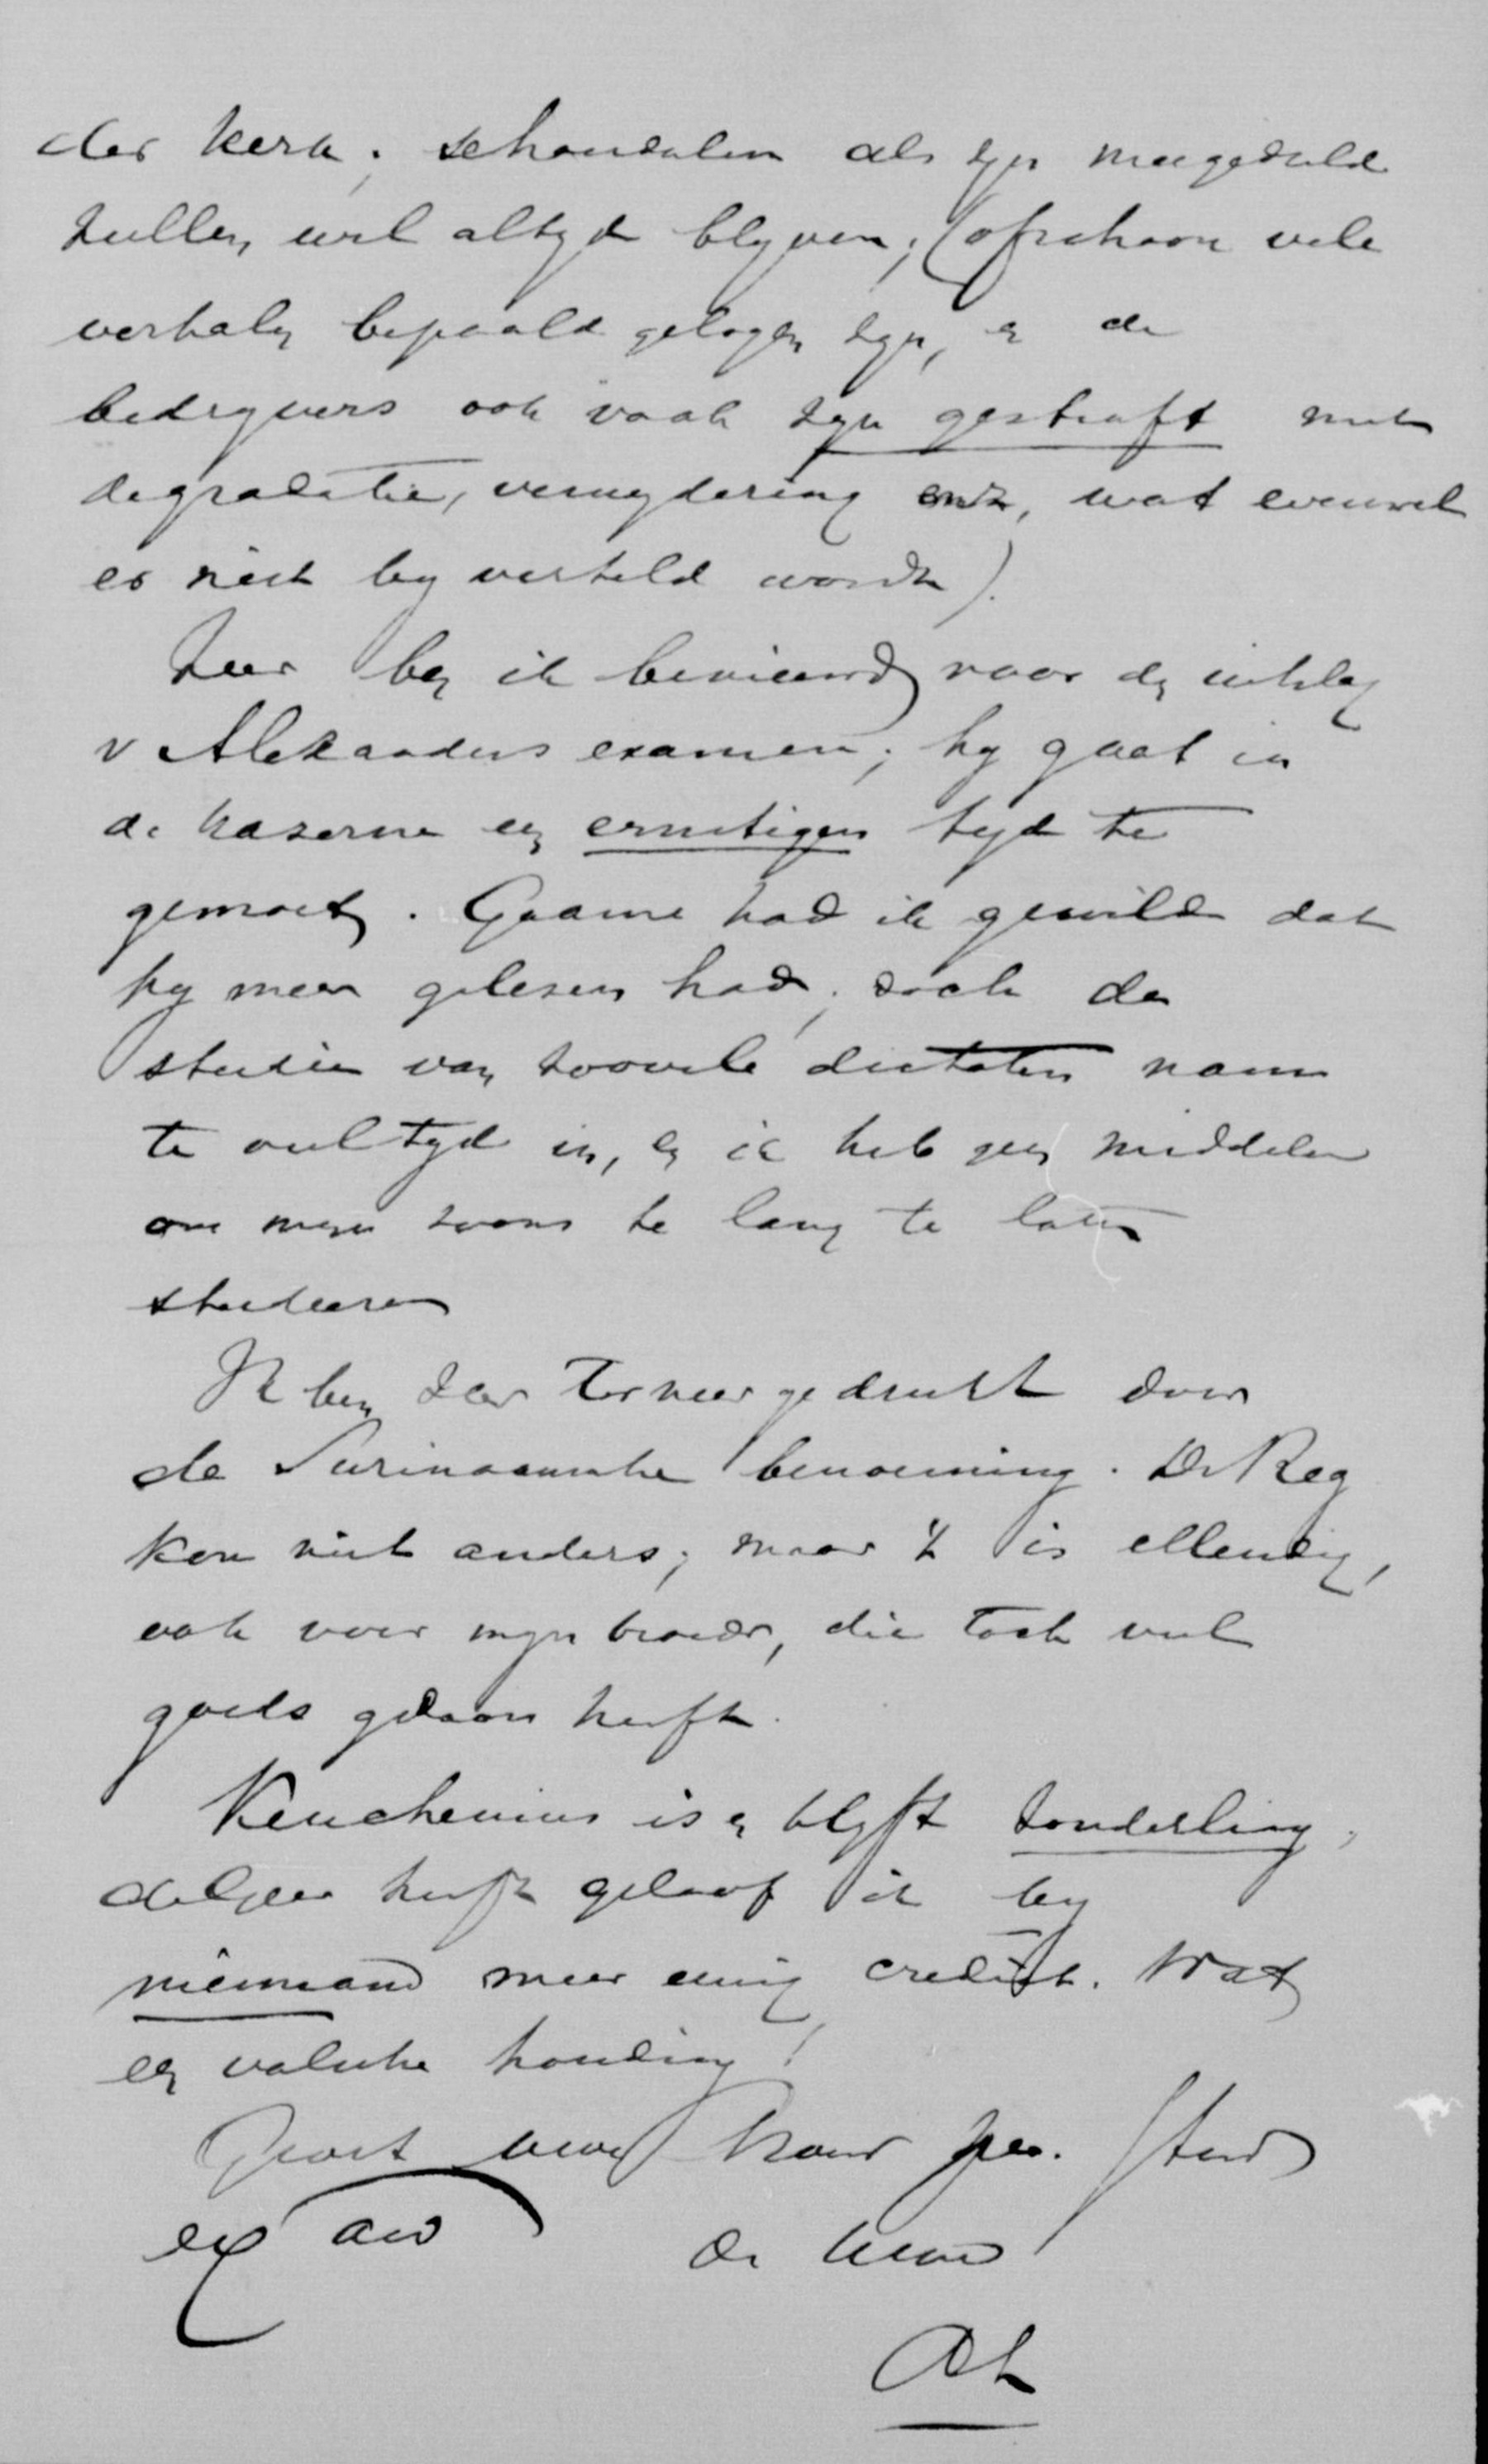 der kerk; schandalen als zyn meegedeeld
zullen wel altyd blyven; (ofschoon vele
verhalen bepaald gelogen zyn, en de
bedryvers ook vaak zyn gestraft met
degradatie, verwydering enz, wat evenwel
er niet by verteld wordt).
Zeer ben ik benieuwd naar den uitslag
v Alexanders examen; hy gaat in
de kazerne een ernstigen tyd te
gemoet. Gaarne had ik gewild dat
hy meer gelezen had; doch de
studie van zoovele dictaten nam
te veel tyd in, en ik heb geen middelen
om myn zoons te lang te laten
studeeren
Ik ben zeer terneergedrukt over
de Surinaamsche benoeming. De Reg
kon niet anders; maar 't is ellendig,
ook voor myn broeder, die toch veel
goeds gedaan heeft.
Keuchenius is en blyft zonderling;
heeft geloof ik by
niemand meer eenig crediet. Wat
een valsche houding!
Groet uwe
de uwe